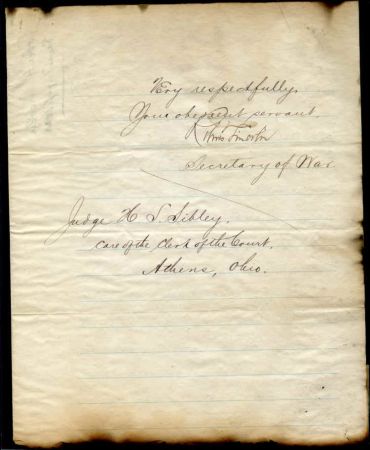 Very respectfully,
Your obedient servant.
Secretary of War
Judge H S. Sibley.
Care of the Clerk of the Court.
Athens, Ohio.